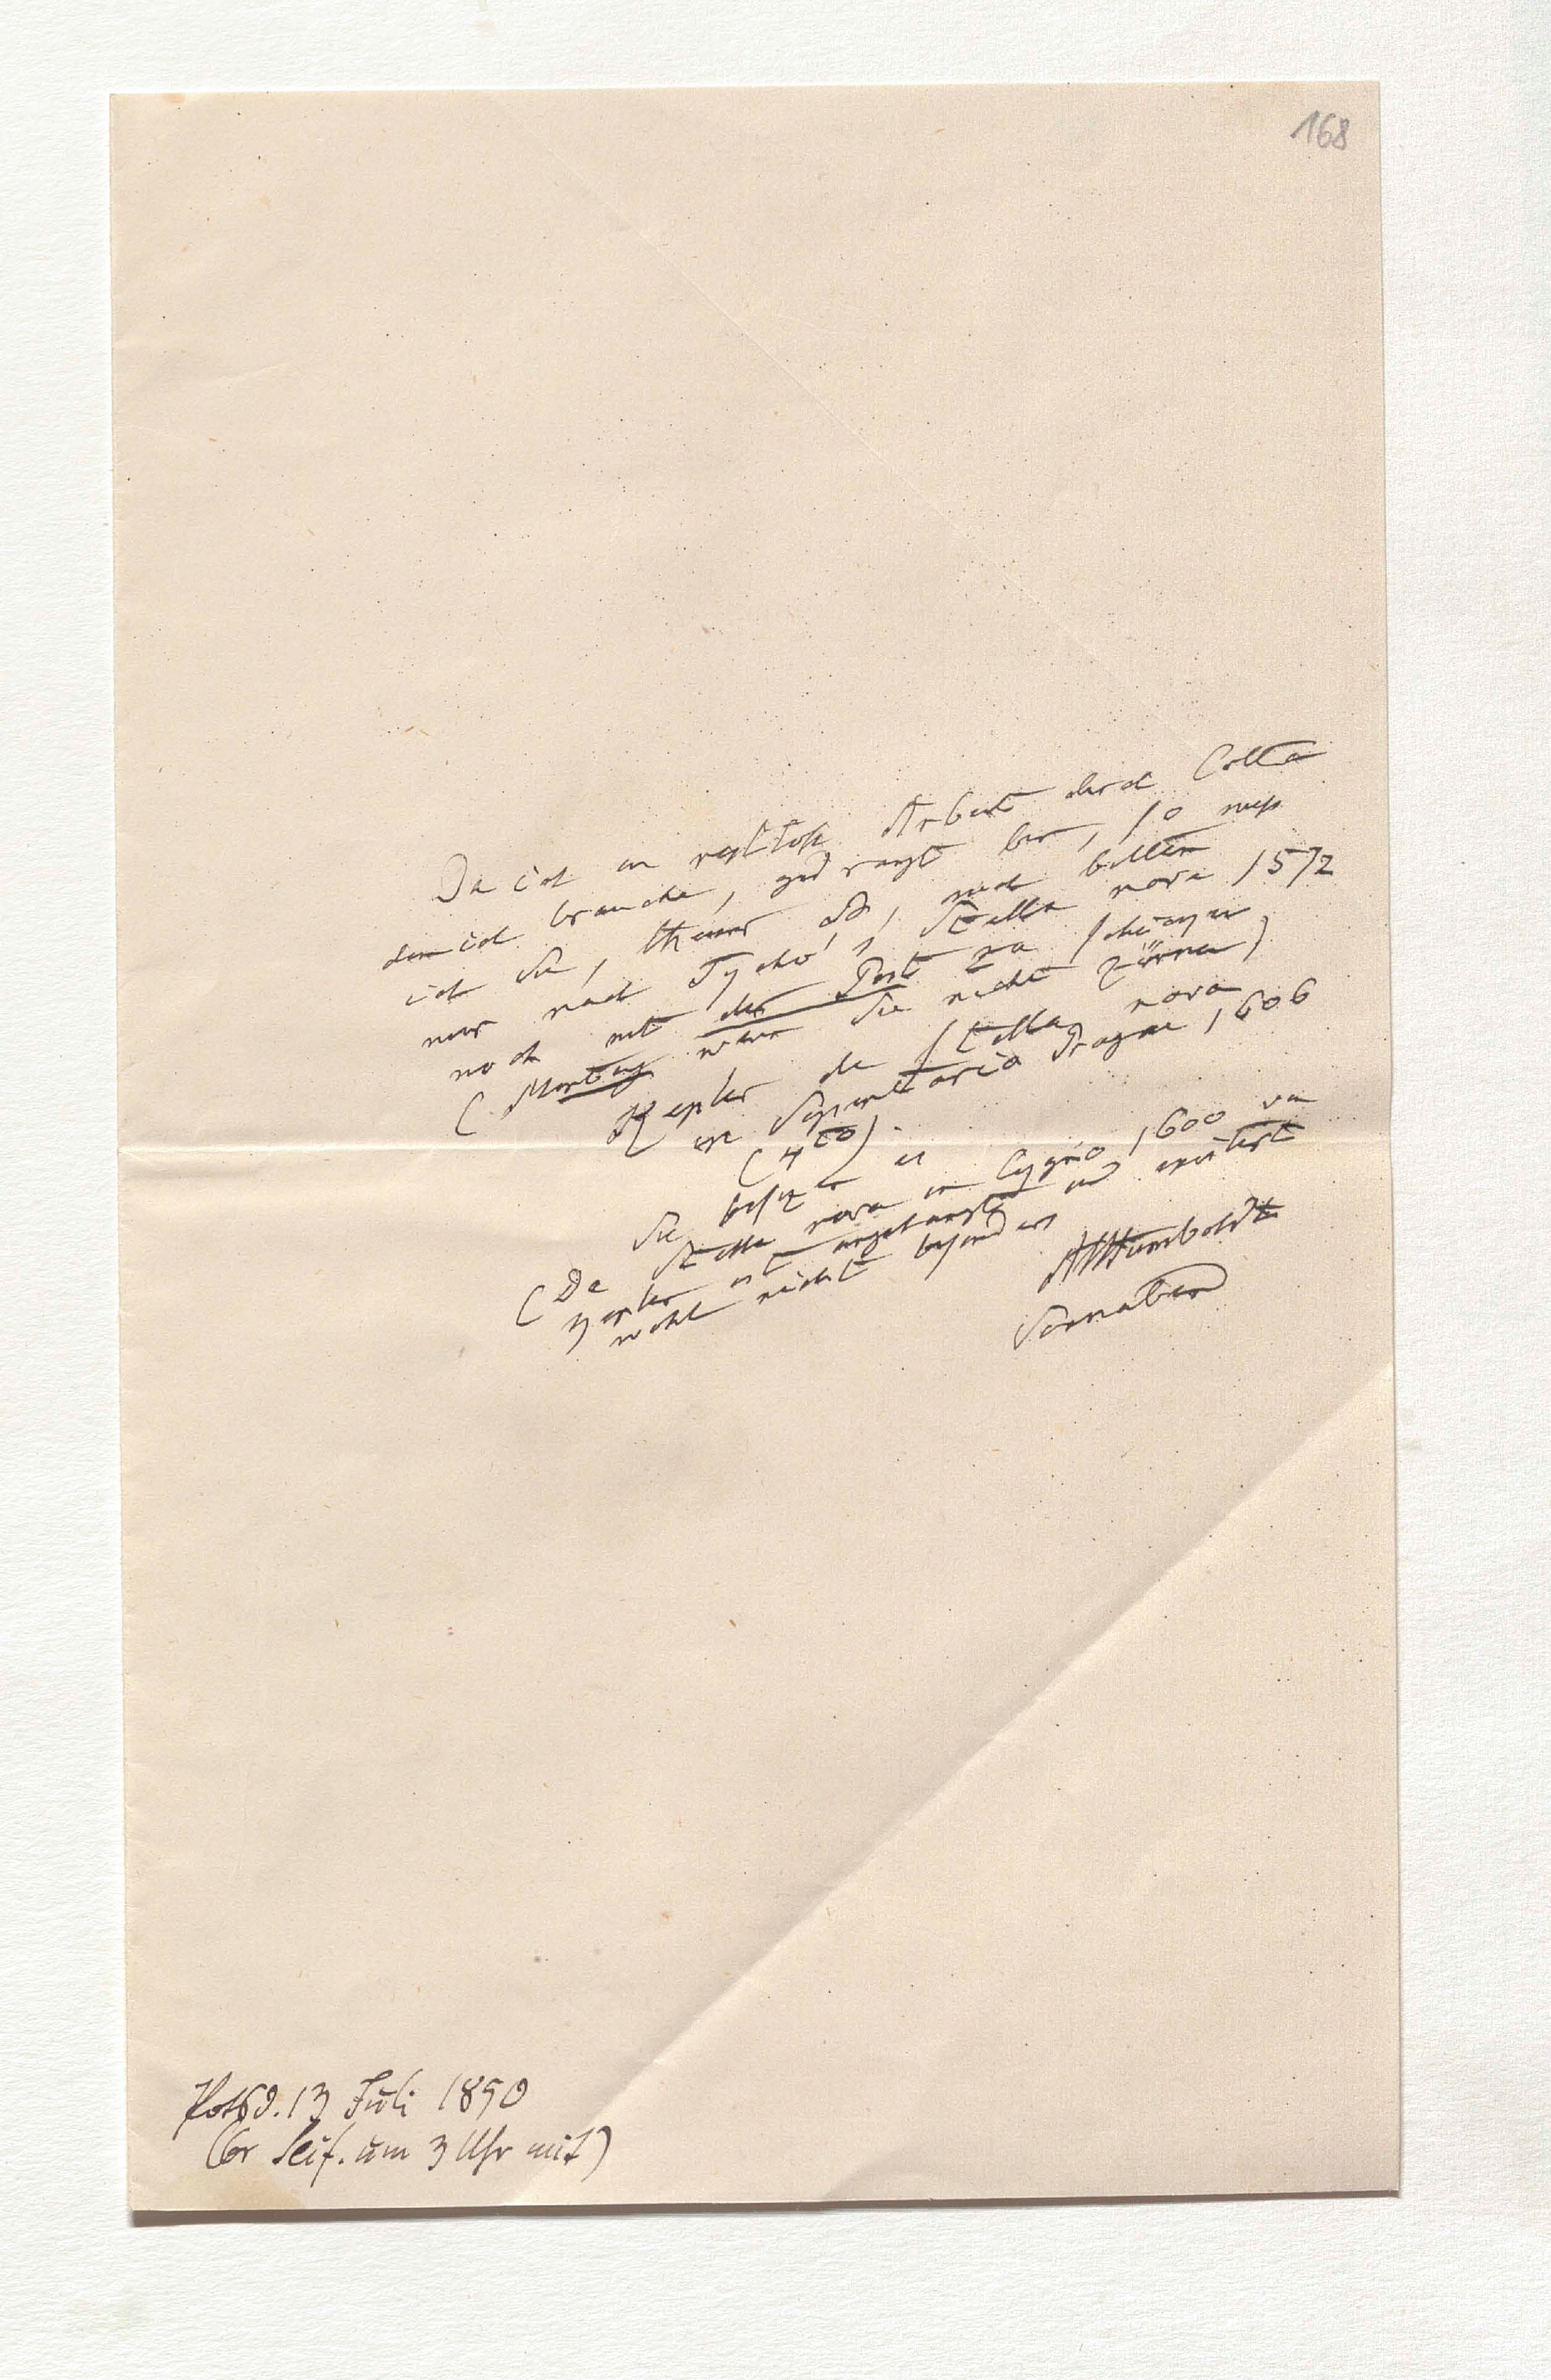 168
Da ich in rastlose Arbeit durch Cotta
den ich brauche, gedrängt bin, so muss
ich Sie, theurer Bu, noch bitten
mir nach Tycho's, Stella nova 1572
noch mit der Post zu schicken
(Montag wenn Sie nicht zürnen)
Kepler de stella nova
in Serpentario Pragae 1606
(4to).
Sie besizen es
(De Stella nova in Cygno 1600 von
Kepler ist angehängt und existirt
wohl nicht besonders
AvHumboldt
Sonnabend
Potsd. 13 Juli 1850
(Gr Seif. um 3 Uhr mit)